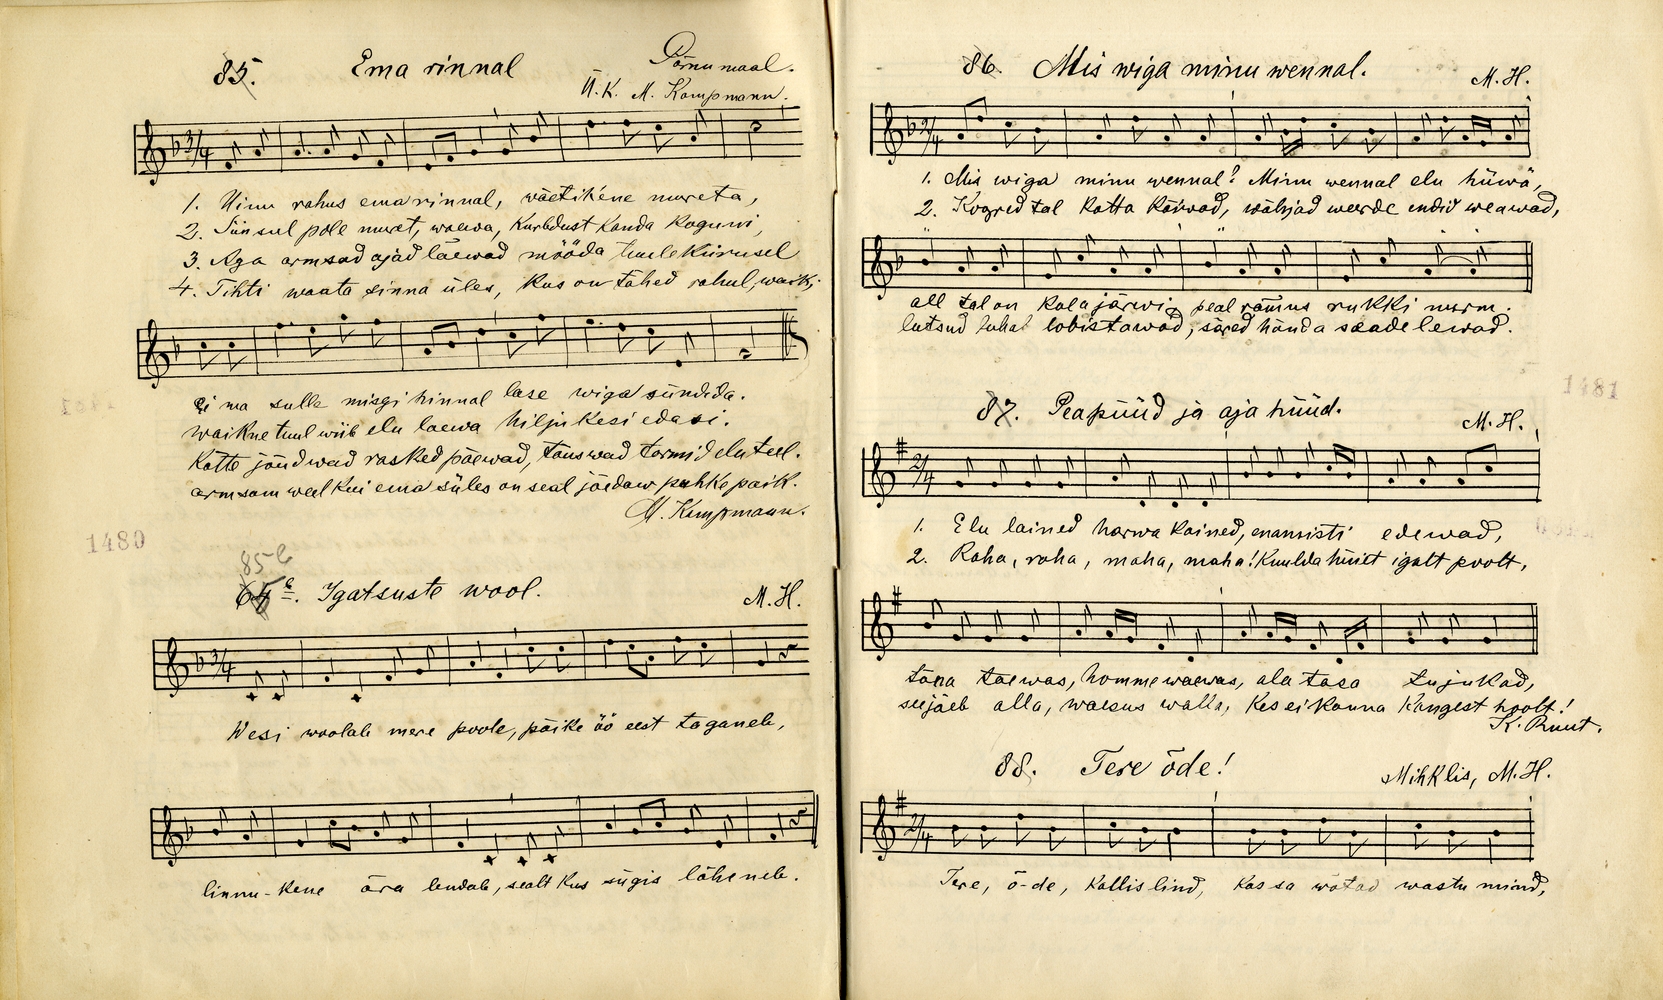 85. Ema rinnal Pärnumaal.
Ü.K. M. Kampmann.
3/4
1. Uinu rahus ema rinnal, wäetikene mureta,
2. Siin sul pole muret, waewa, kurbdust kanda koguni,
3. Aga armsad ajad läewad mööda tuule kiirusel
4. Tihti waata sinna üles, kus on tähed rahul, waiki
Ei ma sulle misgi hinnal lase wiga sündida.
waikne tuul wiib elu laewa hiljukesi edasi.
Kätte jõudwad rasked päewad, tõuswad tormid elu teel.
armsam weel kui ema süles on seal jäedaw puhke paik.
M. Kampmann.
1480
85b
Igatsuste wool. M.H.
3/4
Wesi woolab mere poole, päike öö eest taganeb,
linnu-kene ära lendab, sealt kus sügis läheneb.
86. Mis wiga minu wennal. M.H.
2/4
1. Mis wiga minu wennal? Minu wennal elu hüwä,
2. Kogred tal katta
all tal on kala järwi, peal rõõmus rukki nurm.
lutsud luhal lobistawad, säred hända säädelewad.
1481
87. Peapüüd ja aja hüüd. M.H.
2/4
1. Elu lained harwa kained, enamisti edewad,
2. Raha, raha, maha, maha! Kuulda hüüet igalt poolt,
täna taewas, homme waewas, ala tasa tujukad,
see jäeb alla, waesus walla, kes ei kanna kangest hoolt!
88. Tere õde! Mihklis, M.H.
2/4
Tere, õ-de, kallis lind, kas sa wõtad wastu mind,